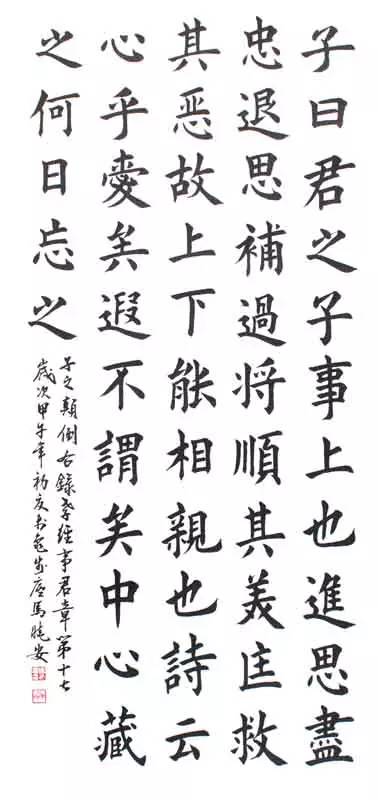 子曰君之子事上也進思盡
忠退思補過将順其美匡救
其恶故上下能相親也詩云
心乎愛矣遐不謂矣中心藏
之何日忘之
子之顛倒右錄孝经事君章第十七
歲次甲午年初夏书馬晓安